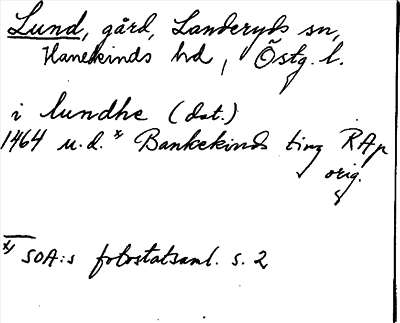 Lund, gård, Landeryds sn,
Hanekinds hd, Östg. l.
i lundhe (dat.)
1464 u.d. x Bankekinds ting RAp
orig.
x) SOA:s fotostatsaml. s. 2